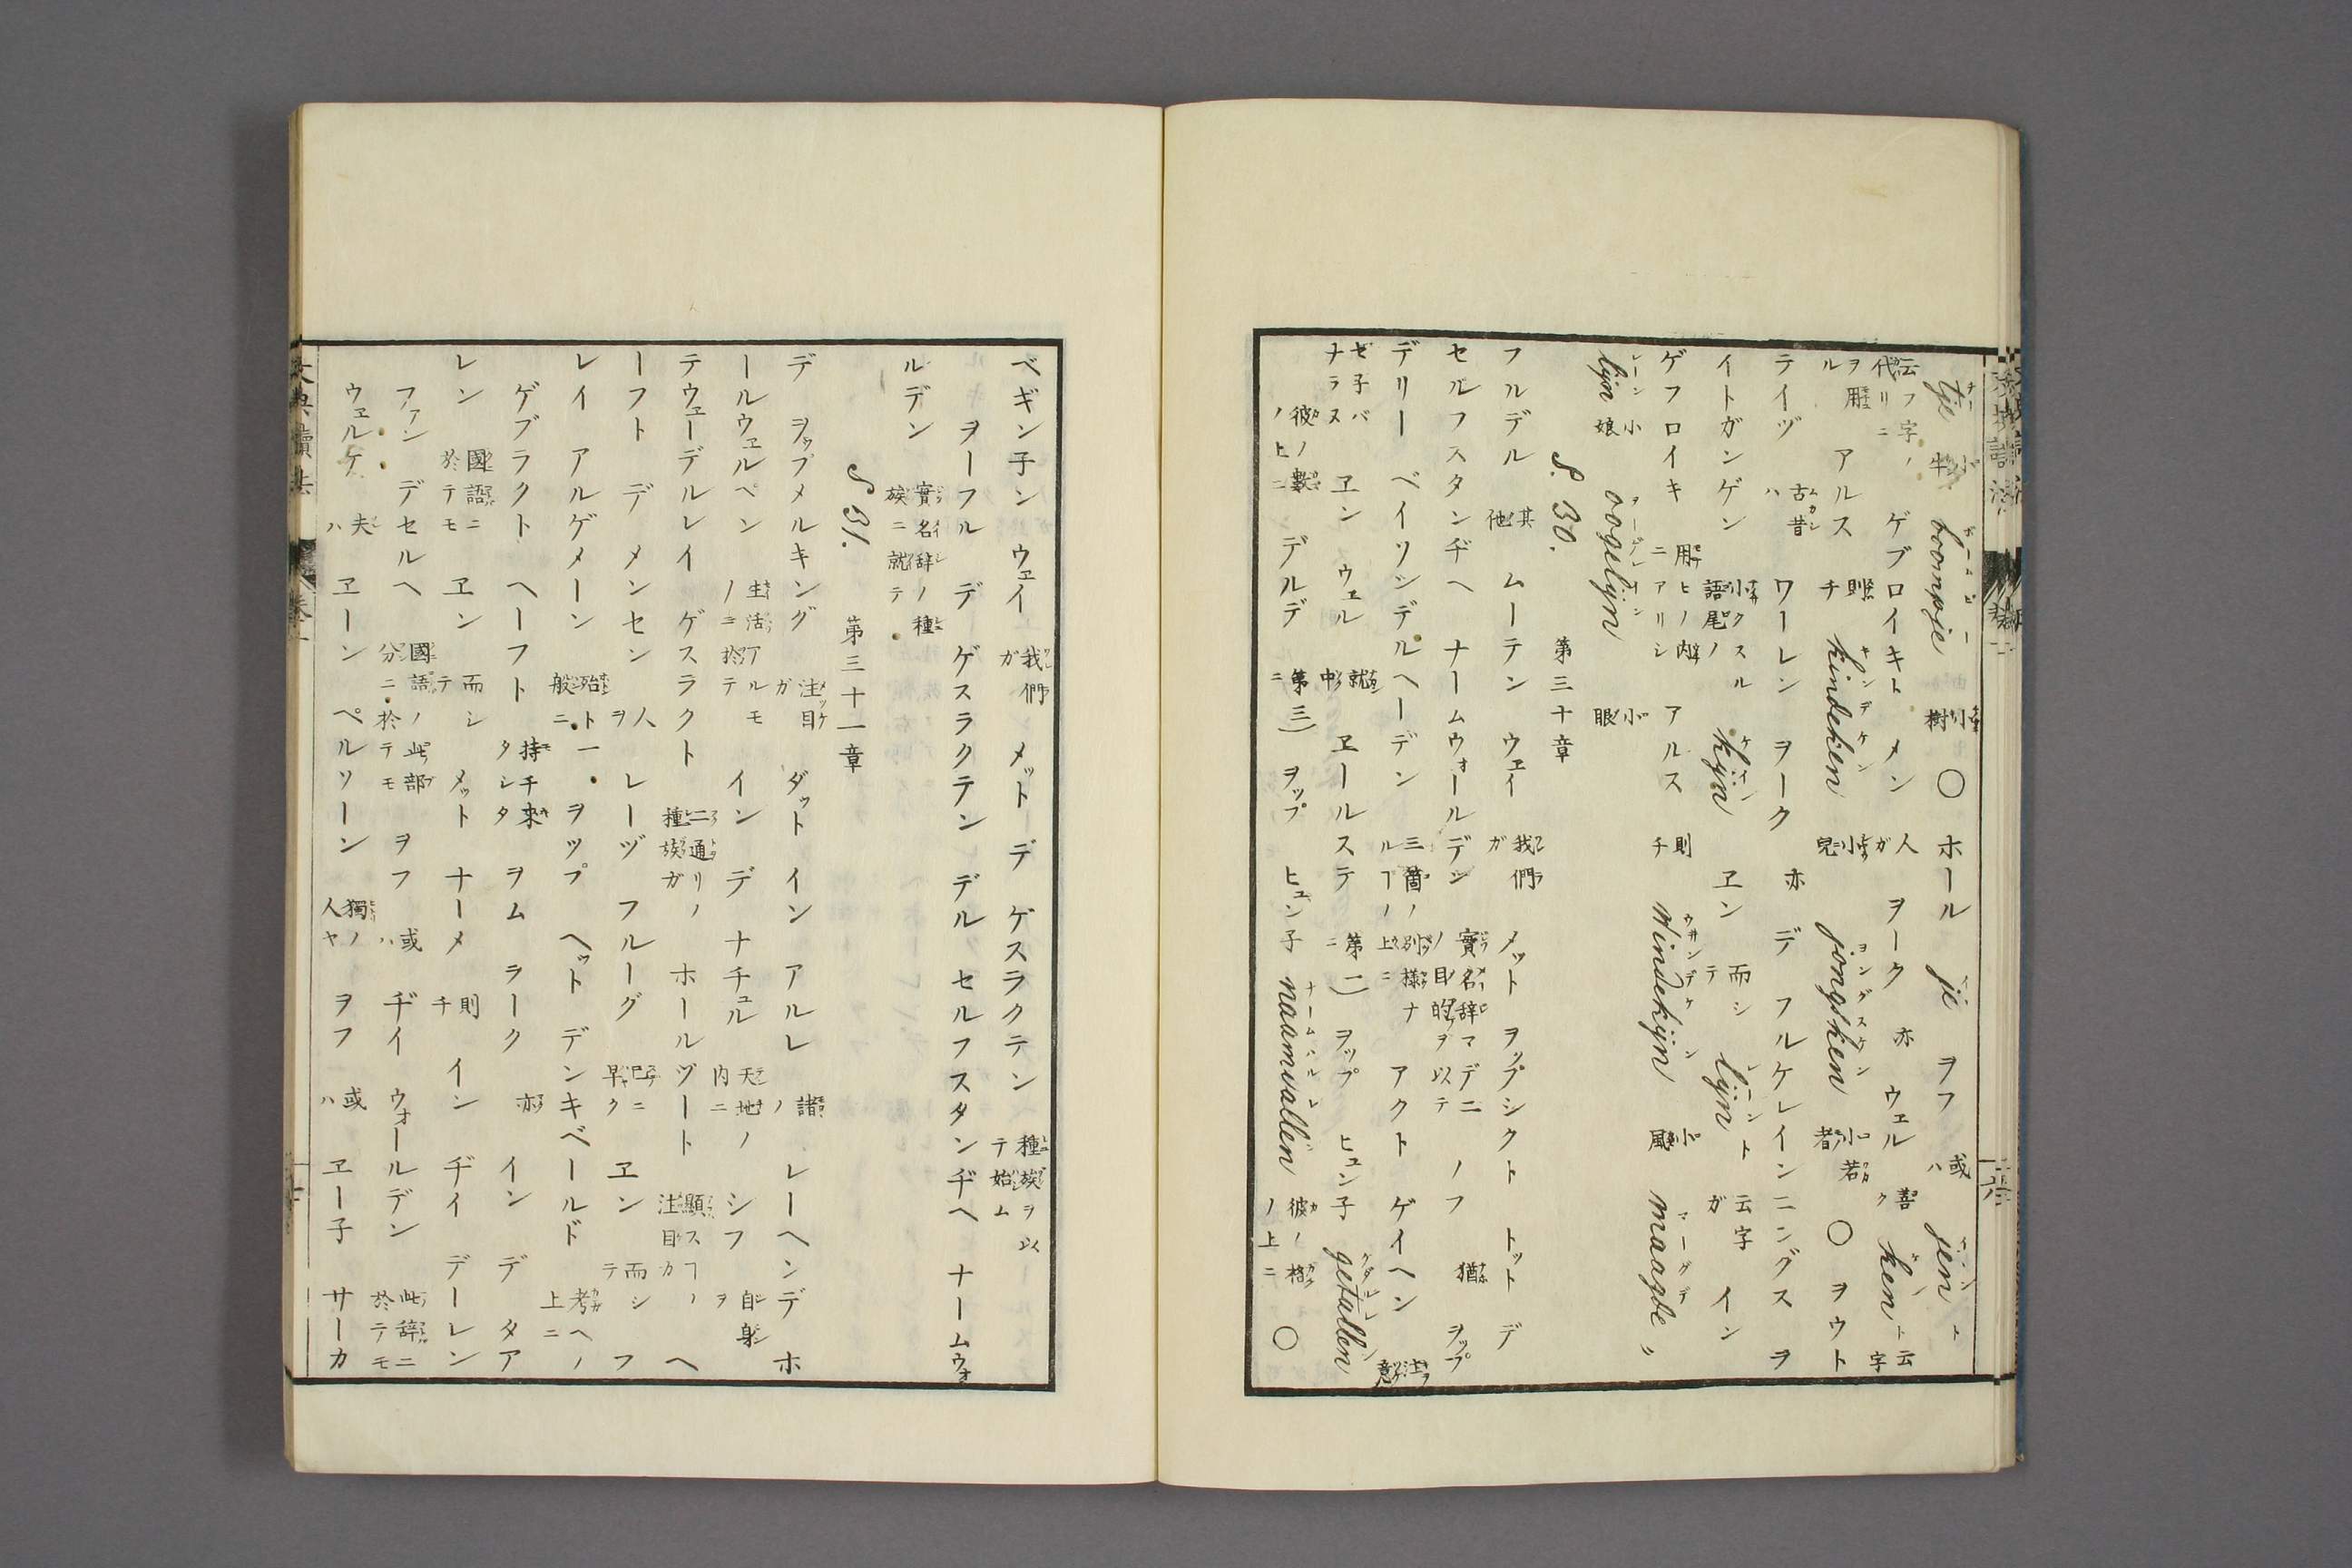 tje 小牛 boompje 小樹 〇 ホール je ヲフ 或ハ jen ト
云フ字ノ代リニ ゲブロイキト メン 人ガ ヲーク 亦 ウェル 善ク ken ト云字
ヲ用ル アルス 則チ kindeken 小児 jongsken 小若者 〇 ヲウト
テイヅ 古昔ハ ワーレン ヲーク 亦 デ フルケレイニングス ヲ
イトガンゲン 小クスル語尾ノ kijn ヱン 而シテ lijn ト云字ガ イン
ゲフロイキ 用ヒノ内ニアリシ アルス 則チ windekijn 小風 maagde
lijn 小娘 oogelijn 小眼
S. 30. 第三十章
フルデル 其他 ムーテン ウェイ 我們ガ メット ヲップシクト トット デ
セルフスタンヂヘ ナームウォールデン 實名辞ノ目的マデヲ以テ ノフ 猶 ヲップ
デリー ベイソンデルヘーデン 三箇ノ別様ナルノ上ニ アクト ゲイヘン 注意
ゼ子バナラヌ ヱン ウェル 就中 ヱールステ 第一ニ ヲップ ヒュン子 getallen
彼ノ數ノ上ニ デルデ 第三ニ ヲップ ヒュン子 naamvallen 彼ノ格ノ上ニ 〇
ベギン子ン ウェイ 我們ガ メット デ ゲスラクテン 種族ヲ以テ始ム
ヲーフル デ ゲスラクテン デル セルフスタンヂヘ ナームウォ
ルデン 實名辞ノ種族ニ就テ
S 31. 第三十一章
デ ヲップメルキング 注目ガ ダット イン アルレ 諸ノ レーヘンデ ホ
ールウェルペン 生活アルモノニ於テ イン デ ナチュル 天地ノ内ニ シフ 自身ヲ
テウェーデルレイ ゲスラクト 二通リノ種族ガ ホールヅート 顕スノ注目カ ヘ
ーフト デ メンセン 人ヲ レーヅ フルーグ 已ニ早ク ヱン 而シテ フ
レイ アルゲメーン 殆ト一般ニ ヲップ ヘット デンキベールド 考ヘノ上ニ
ゲブラクト ヘーフト 持チ來タシタ ヲム ラーク 亦 イン デ タア
レン 國語ニ於テモ ヱン 而シテ メット ナーメ 則チ イン ヂイ デーレン
ファン デセルヘ 國語ノ此部分ニ於テモ ヲフ 或ハ ヂイ ウォールデン 此辞ニ於テモ
ウェルケ 夫ハ ヱーン ペルソーン 獨ノ人ヤ ヲフ 或ハ ヱー子 サーカ